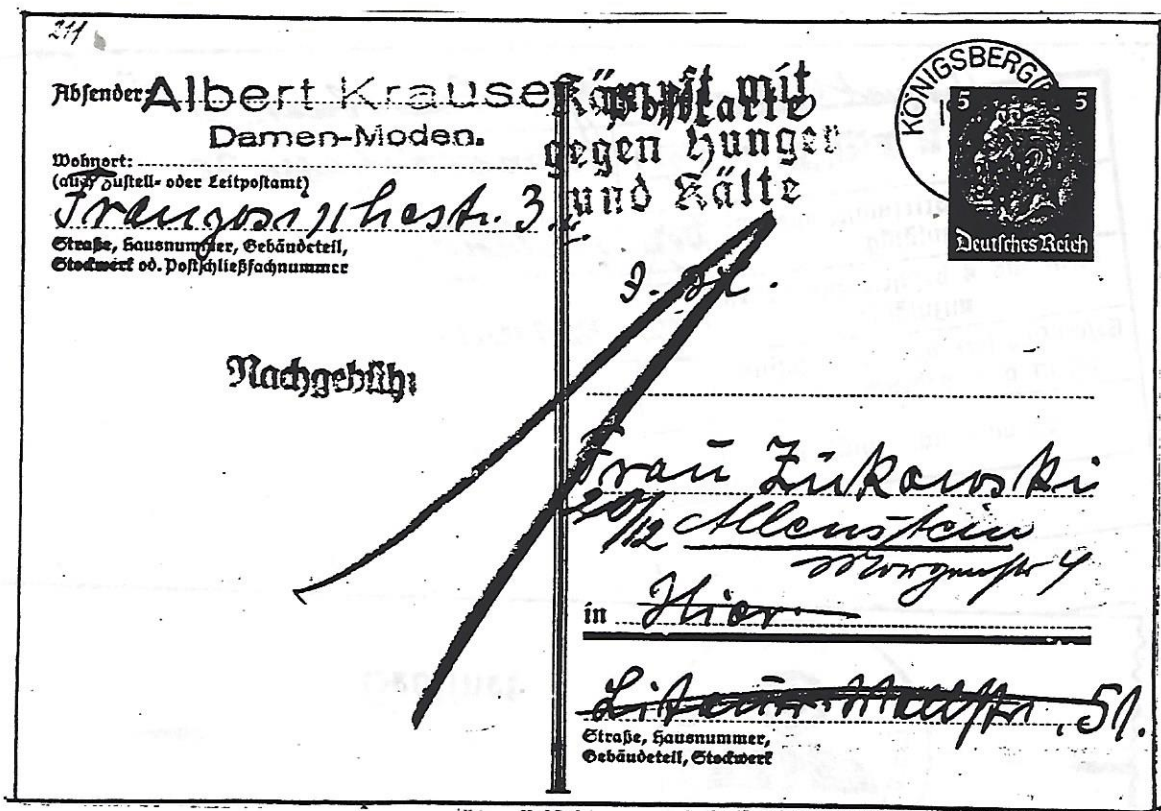 211
Absender: Albert Krause
Damen-Moden.
Wohnort:
(auch Zustell- oder Leitpostamt)
Französischestr. 3
Straße, Hausnummer, Gebäudeteil,
Stockwerk od. Postschließfachnummer
Nachgebühr
Postkarte
Kämpft mit
gegen Hunger
und Kälte
KÖNIGSBERG
5 5
Deutsches Reich
Frau Zukowski
20/12 Allenstein
Morgenstr 4
in Hier
Litauer Wallstr. 51.
Straße, Hausnummer,
Gebäudeteil, Stockwerk